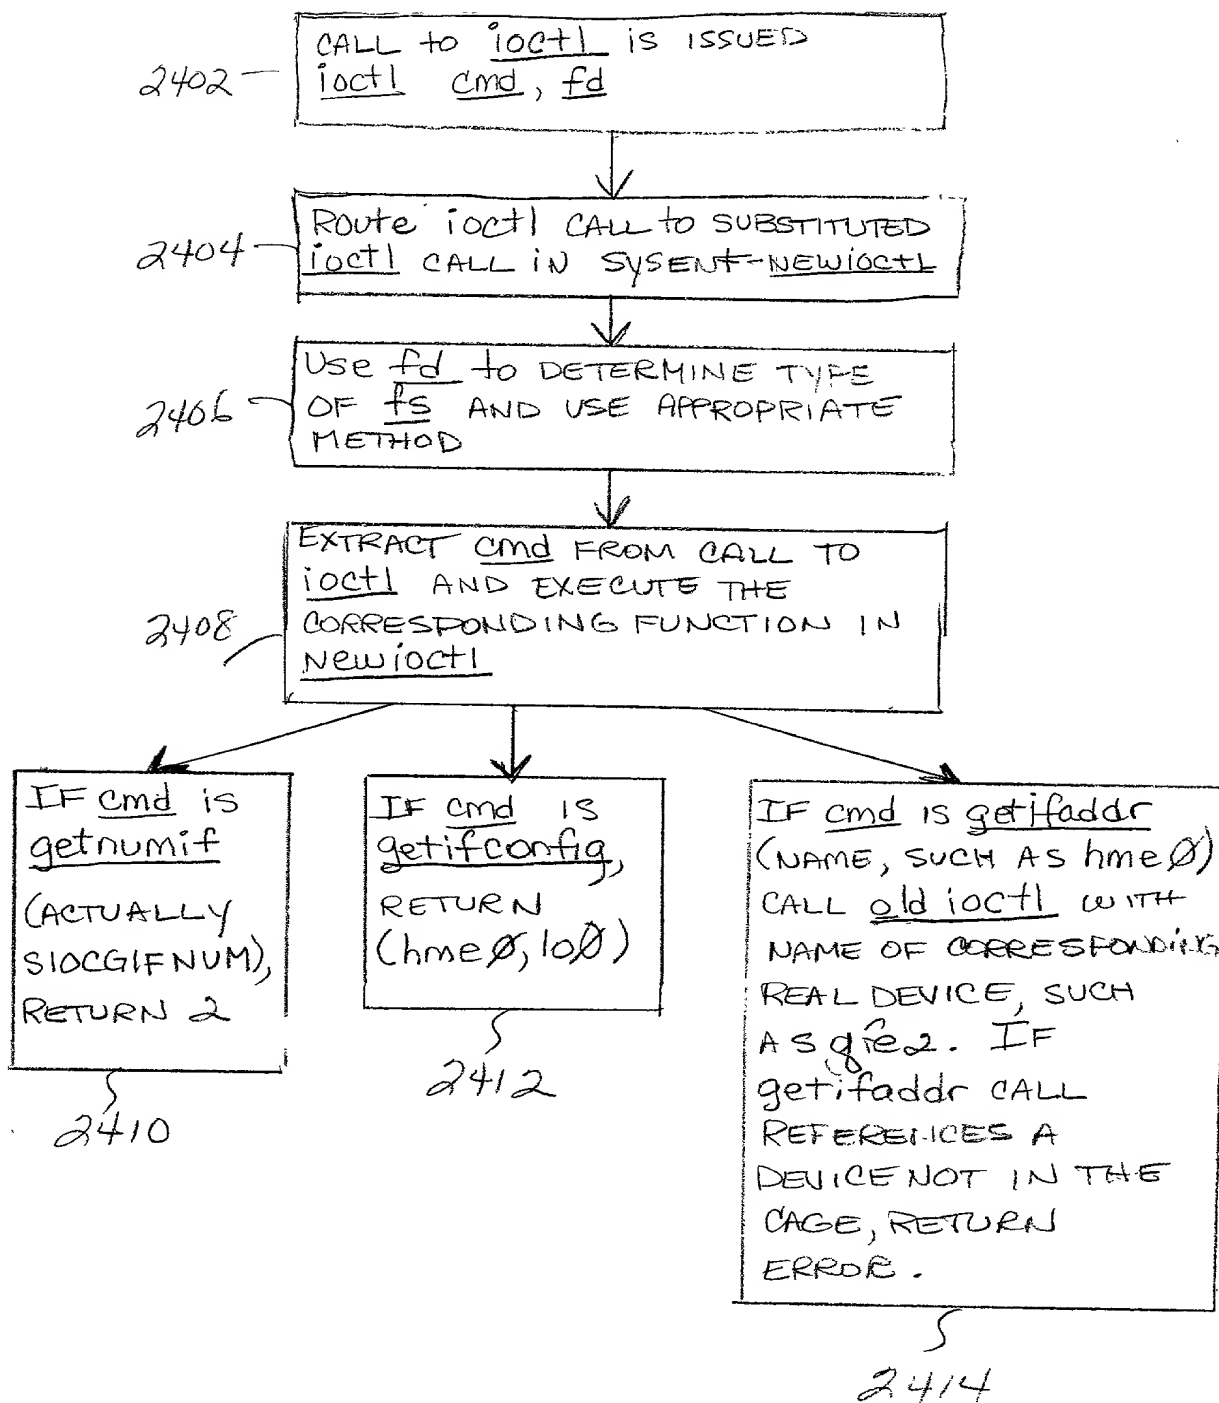 CALL to ioctl is ISSUED
ioctl cmd, fd
2402
Route ioctl CALL to SUBSTITUTED
ioctl CALL IN SYSENT-NEWIOCTL
2404
Use fd to DETERMINE TYPE
OF fs AND USE APPROPRIATE
METHOD
2406
EXTRACT cmd FROM CALL TO
ioctl AND EXECUTE THE
CORRESPONDING FUNCTION IN
Newioctl
2408
IF cmd is
getnumif
(ACTUALLY
SIOCGIFNUM),
RETURN 2
2410
IF cmd IS
getifconfig,
RETURN
(hme0, lo0)
2412
IF cmd IS getifaddr
(NAME, SUCH AS hme0)
CALL old ioctl WITH
NAME OF CORRESPONDING
REAL DEVICE, SUCH
AS IF
getifaddr CALL
REFERENCES A
DEVICE NOT IN THE
CAGE, RETURN
ERROR.
2414